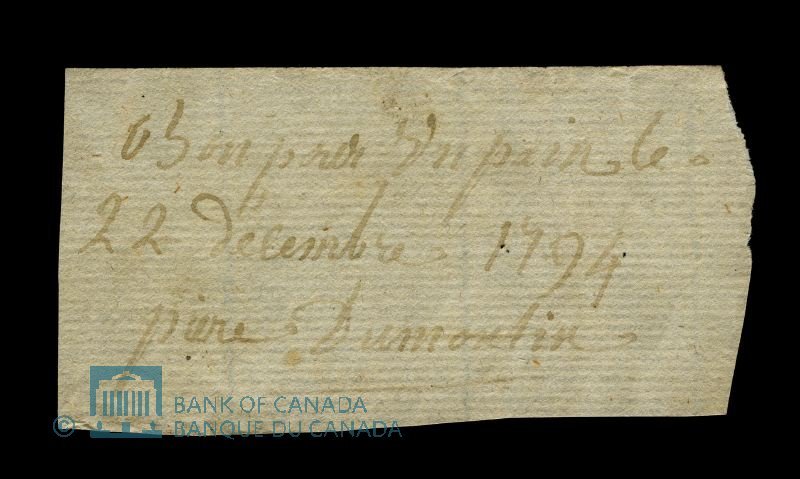 Bon pour Un pain, le
22 decembre. 1794
piere Dumoulin
© BANK OF CANADA
BANQUE DU CANADA